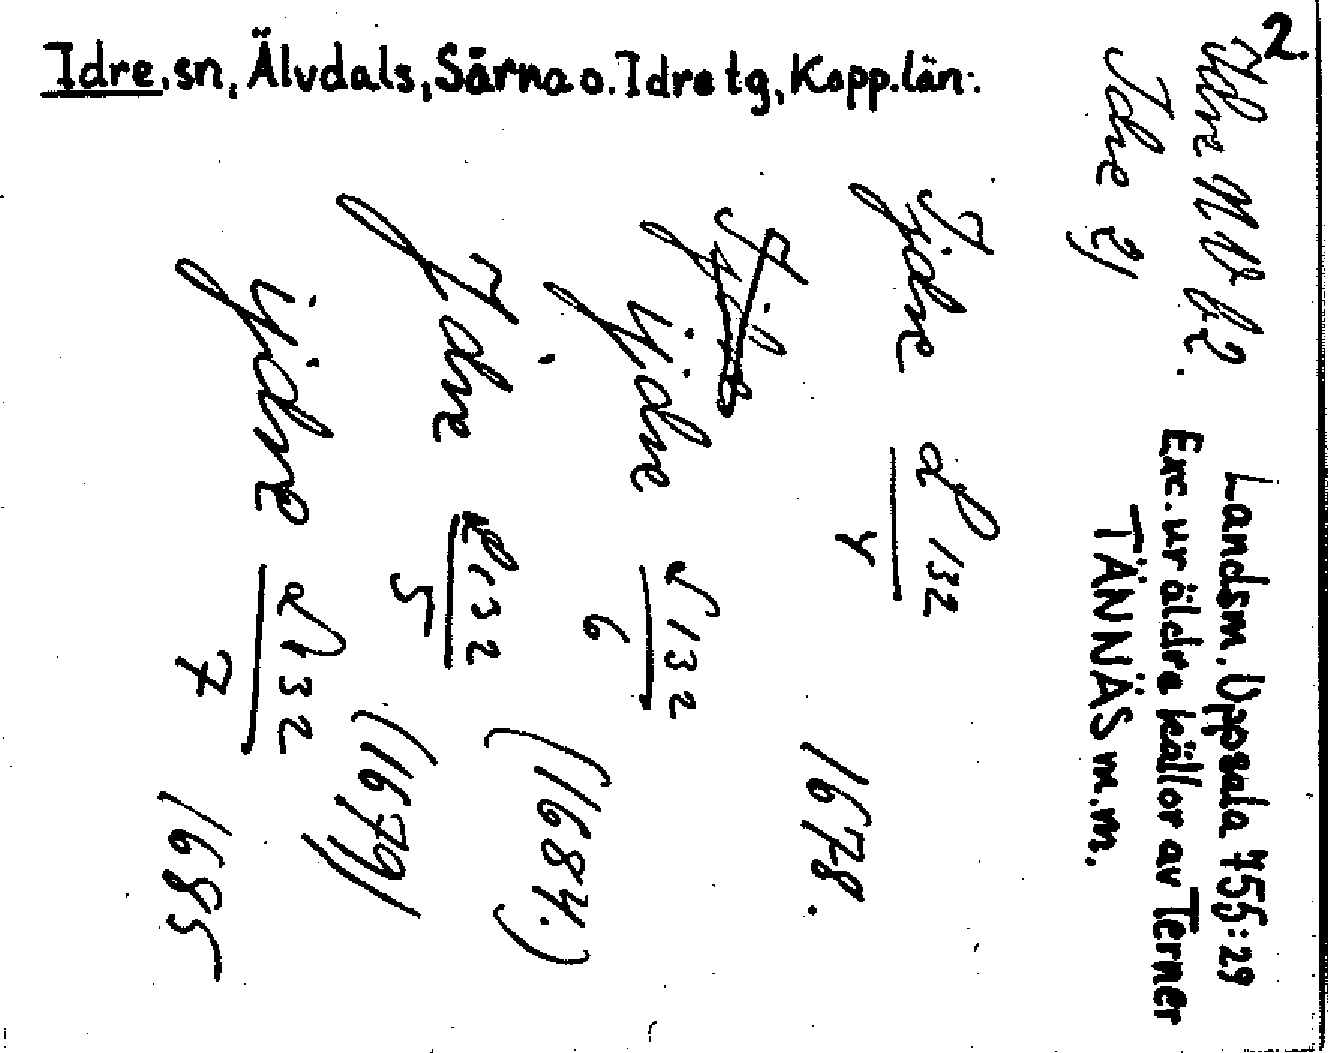 2.
Idre, sn, Älvdals, Särna o. Idre tg, Kopp. län.
Idre
Landsm. Uppsala 755:29
Exc. ur äldre källor av Ternér
TÄNNÄS m.m.
132
4
1678.
ijdre 132
6
(1684.)
Jdre 132
5
(1679)
ijdre 132
7
1685